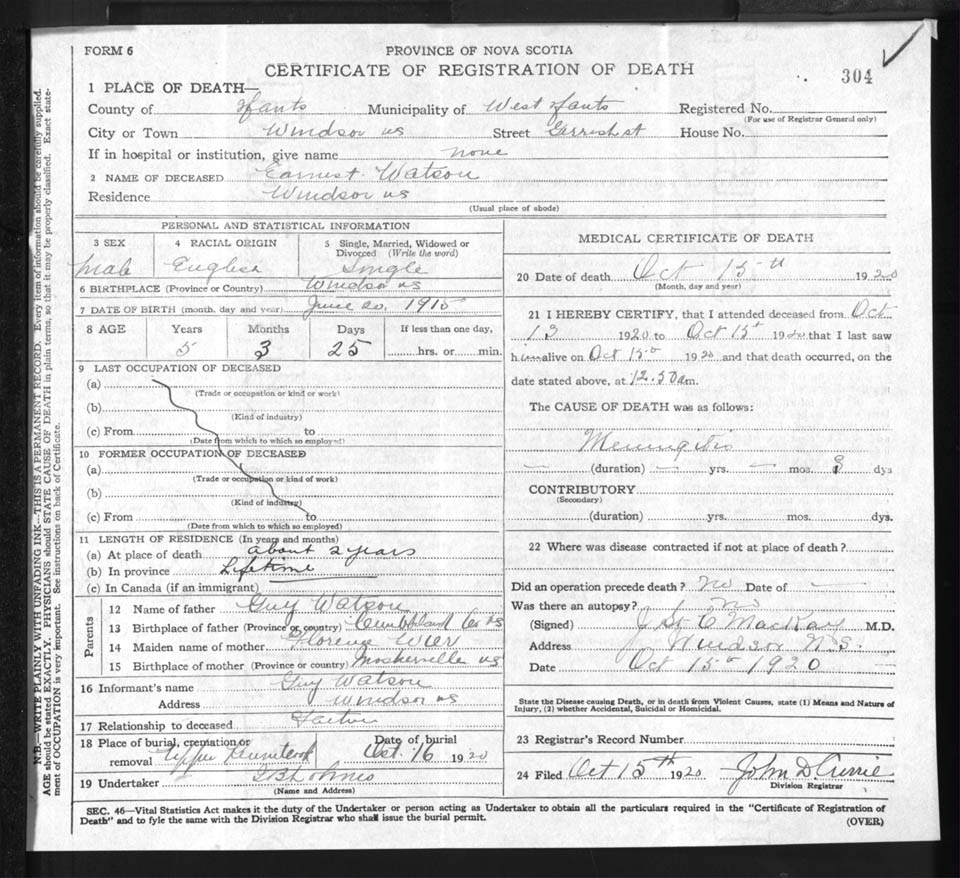 FORM 6
PROVINCE OF NOVA SCOTIA
CERTIFICATE OF REGISTRATION OF DEATH
304
1 PLACE OF DEATH—
County of Hants Municipality of West Hants Registered No.
(For use of Registrar General only)
City or Town Windsor NS Street Gerrish st House No.
If in hospital or institution, give name none
2 NAME OF DECEASED Earnest Watson
Residence Windsor NS
(Usual place of abode)
PERSONAL AND STATISTICAL INFORMATION
3 SEX 4 RACIAL ORIGIN 5 Single, Married, Widowed or Divorced (Write the word)
male English Single
6 BIRTHPLACE (Province or Country) Windsor NS
7 DATE OF BIRTH (month, day and year) June 20, 1915
8 AGE Years Months Days If less than one day,
5 3 25 hrs. or min.
9 LAST OCCUPATION OF DECEASED
(a)
(Trade or occupation or kind or work)
(b)
(Kind of industry)
(c) From to
(Date from which to which so employed)
10 FORMER OCCUPATION OF DECEASED
(a)
(Trade or occupation or kind of work)
(b)
(Kind of industry)
(c) From to
(Date from which to which so employed)
11 LENGTH OF RESIDENCE (In years and months)
(a) At place of death about 2 years
(b) In province Lifetime
(c) In Canada (if an immigrant)
Parents
12 Name of father Guy Watson
13 Birthplace of father (Province or country) Cumberland Co NS
14 Maiden name of mother Florence Wier
15 Birthplace of mother (Province or country) Mosherville NS
16 Informant's name Guy Watson
Address Windsor NS
17 Relationship to deceased Father
18 Place of burial, cremation or removal Upper Date of burial Oct. 16 1920
19 Undertaker
(Name and Address)
MEDICAL CERTIFICATE OF DEATH
20 Date of death Oct 15th 1920
(Month, day and year)
21 I HEREBY CERTIFY, that I attended deceased from Oct
13 1920 to Oct 15th 1920 that I last saw
him alive on Oct 15th 1920 and that death occurred, on the
date stated above, at 12.50 am.
The CAUSE OF DEATH was as follows:
Meningitis
— (duration) — yrs. — mos. dys
CONTRIBUTORY
(Secondary)
(duration) yrs. mos. dys.
22 Where was disease contracted if not at place of death?
Did an operation precede death? No Date of —
Was there an autopsy? No
(Signed) MacKay M.D.
Address Windsor N.S.
Date Oct 15th 1920
State the Disease causing Death, or in death from Violent Causes, state (1) Means and Nature of
Injury, (2) whether Accidental, Suicidal or Homicidal.
23 Registrar's Record Number
24 Filed Oct 15th 1920 John D. Currie
Division Registrar
SEC. 46—Vital Statistics Act makes it the duty of the Undertaker or person acting as Undertaker to obtain all the particulars required in the "Certificate of Registration of
Death" and to fyle the same with the Division Registrar who shall issue the burial permit.
(OVER)
N.B.—WRITE PLAINLY WITH UNFADING INK—THIS IS A PERMANENT RECORD. Every item of information should be carefully supplied.
AGE should be stated EXACTLY. PHYSICIANS should STATE CAUSE OF DEATH in plain terms, so that it may be properly classified. Exact state-
ment of OCCUPATION is very important. See instructions on back of Certificate.